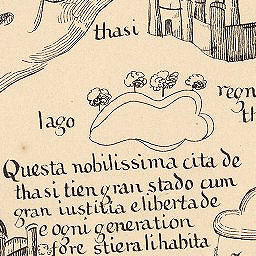 thasi
regn
lago
th
Questa nobilissima cita de
thasi tien gran stado cum
gran iustitia e liberta de
e ogni generation
fore stiera li habita